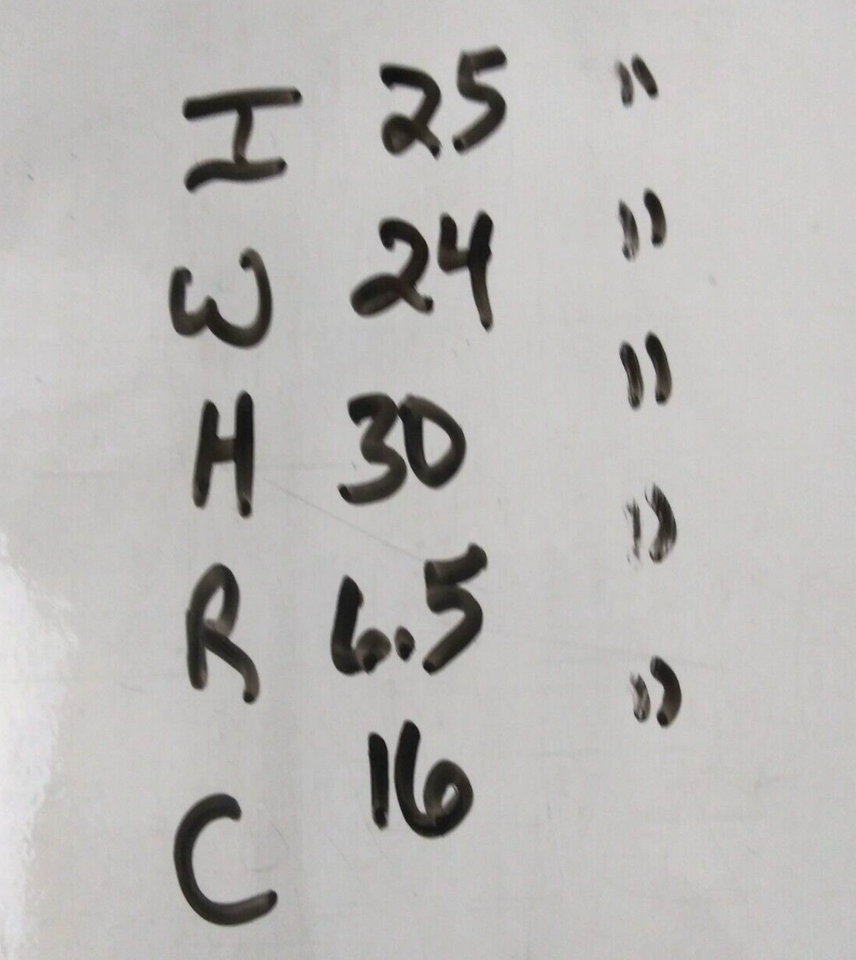 I 25 "
W 24 "
H 30 "
R 6.5 "
C 16 "